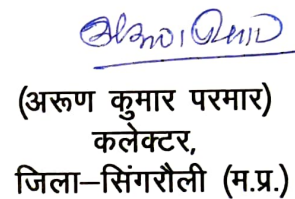 (अरूण कुमार परमार)
कलेक्टर,
जिला–सिंगरौली (म.प्र.)